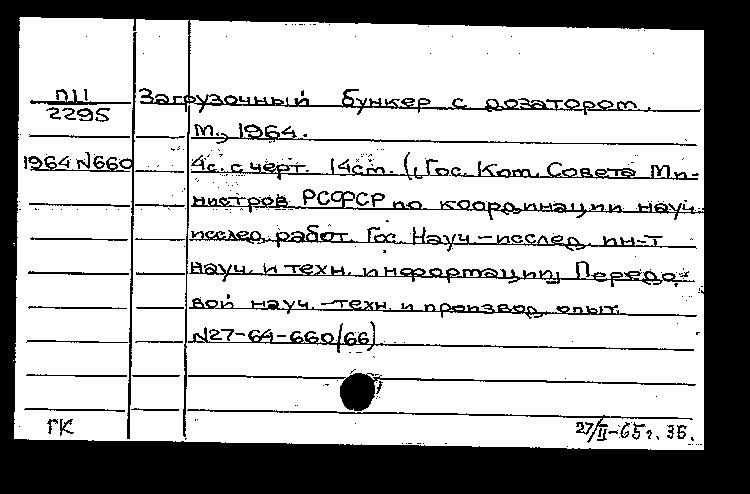 П11
2295
Загрузочный бункер с дозатором.
М., 1964.
1964 N660
4с. с черт. 14см. (Гос. Ком. Совета Ми-
нистров РСФСР по координации науч.
исслед. работ. Гос. Науч.-исслед. ин-т
науч. и техн. информации. Передо-
вой науч.-техн. и производ. опыт.
N27-64-660/66)
ГК
27/II-65г. ЗБ.